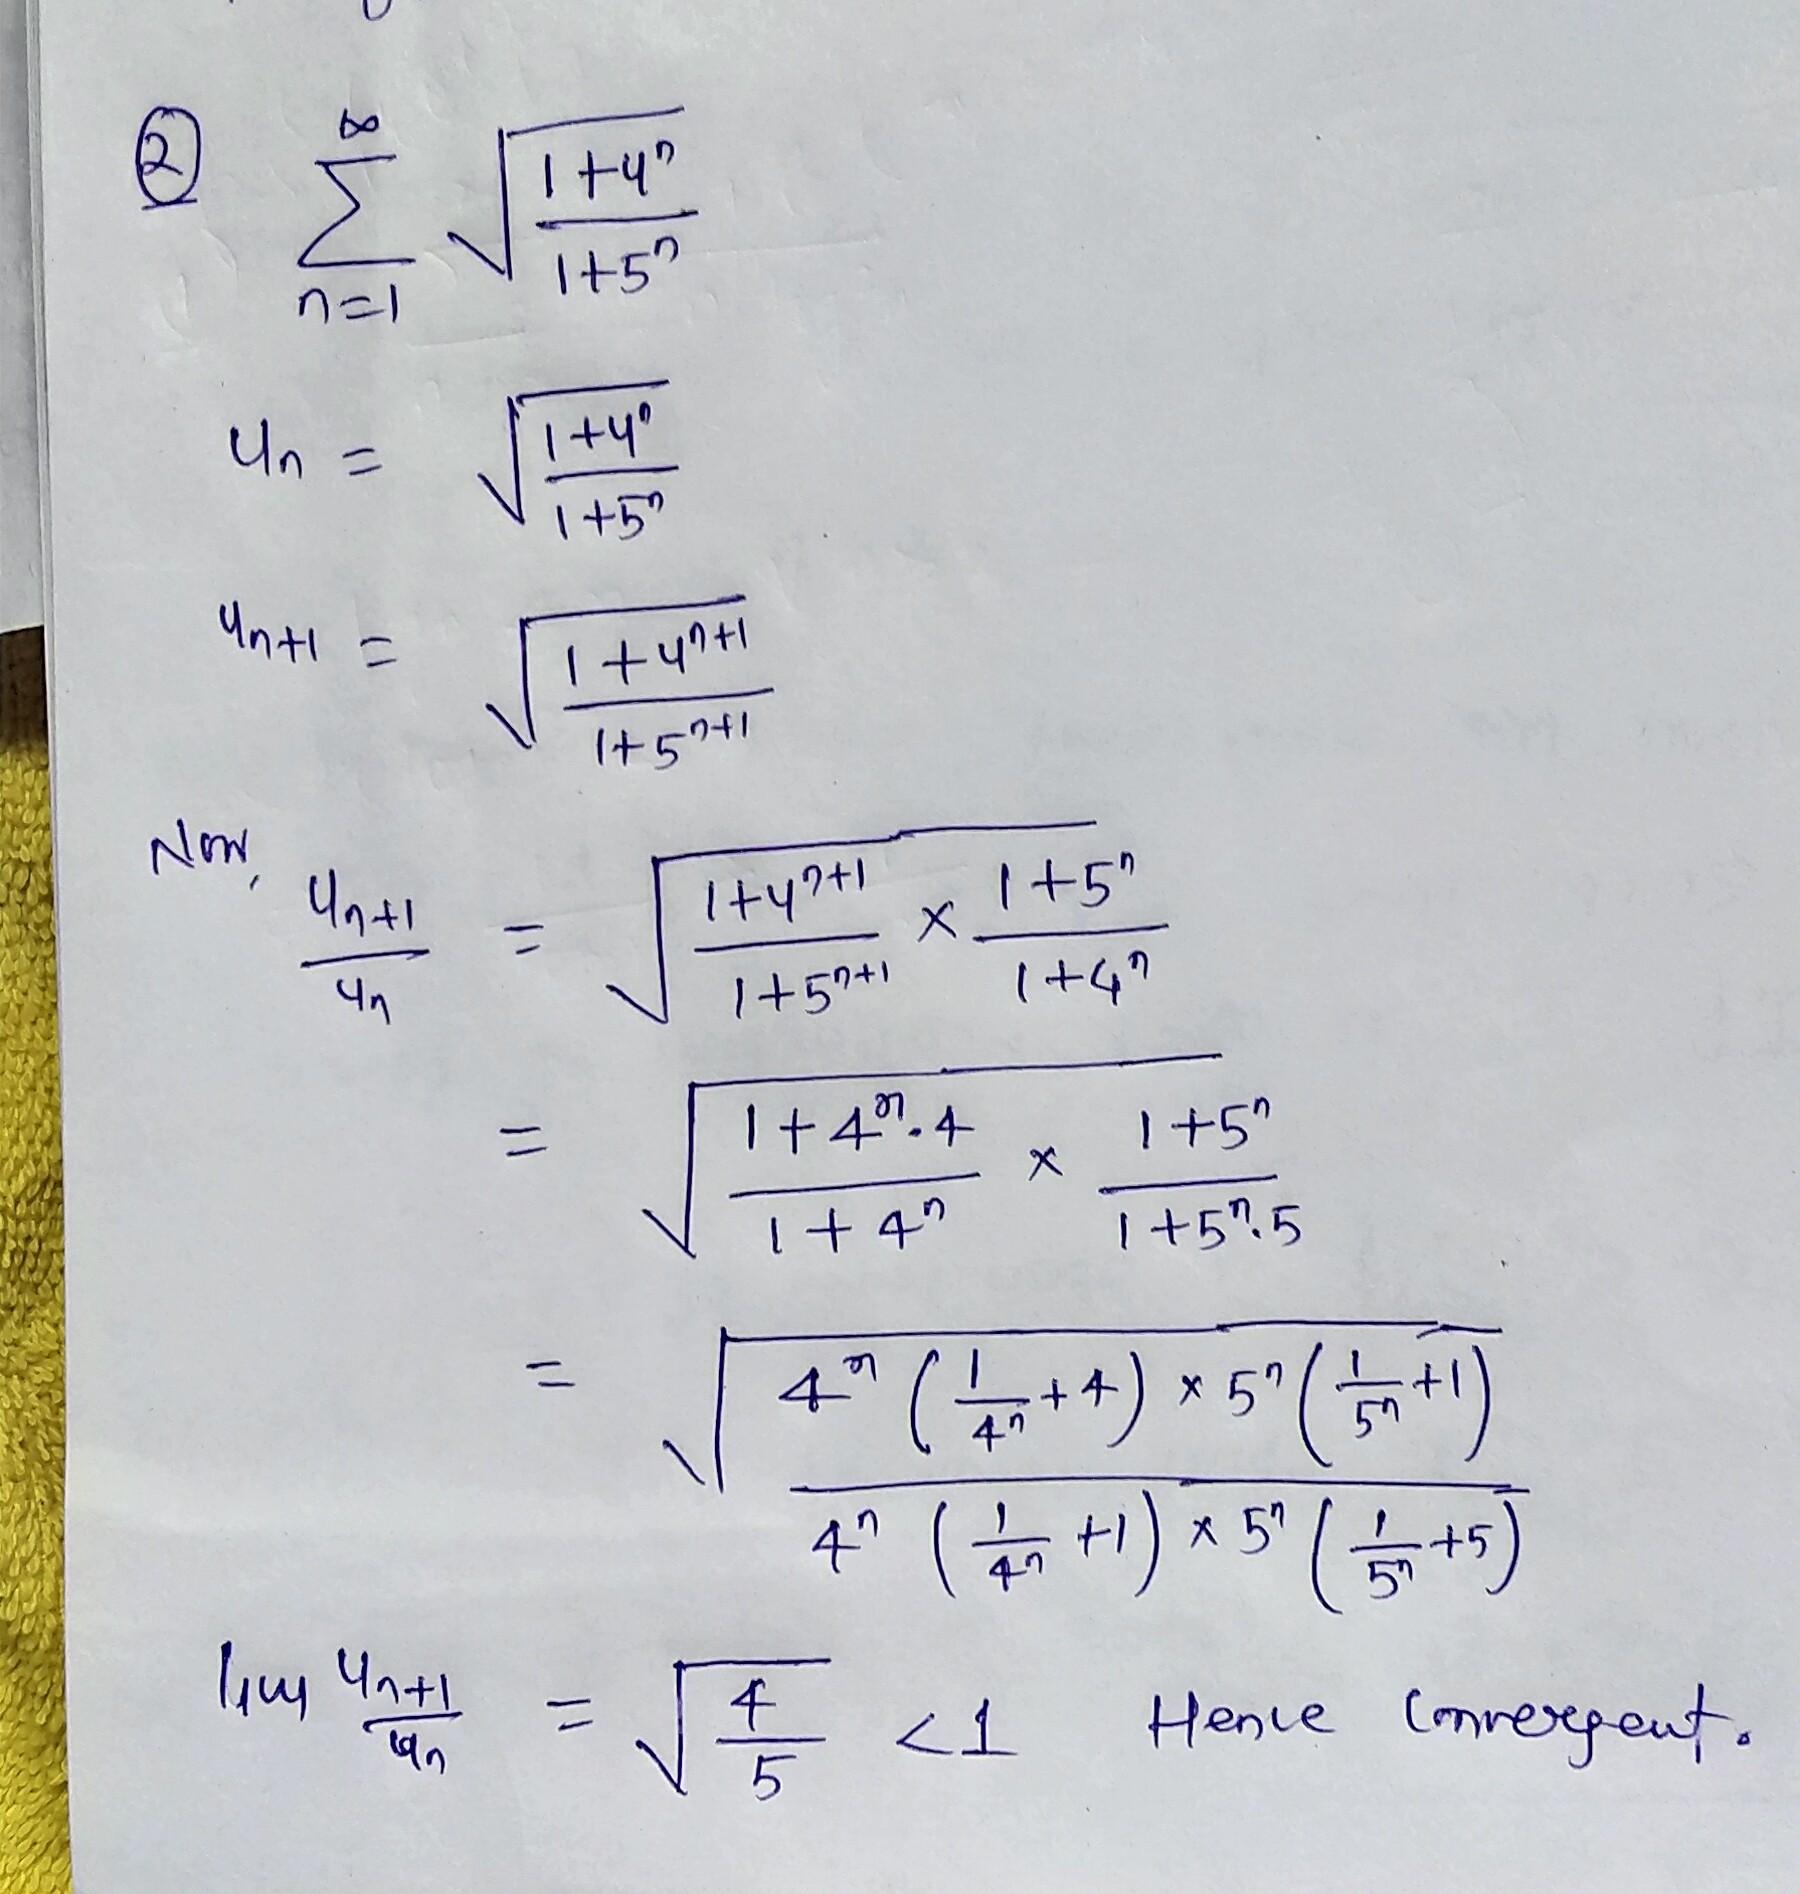 ② ∞∑n=1 √((1+4^n)/(1+5^n))
u_n = √((1+4^n)/(1+5^n))
u_n+1 = √((1+4^n+1)/(1+5^n+1))
Now, u_n+1/u_n = √((1+4^n+1)/(1+5^n+1) × (1+5^n)/(1+4^n))
= √((1+4^n.4)/(1+4^n) × (1+5^n)/(1+5^n.5))
= √((4^n(1/4^n+4) × 5^n(1/5^n+1))/(4^n(1/4^n+1) × 5^n(1/5^n+5)))
lim u_n+1/u_n = √(4/5) <1 Hence Convergent.